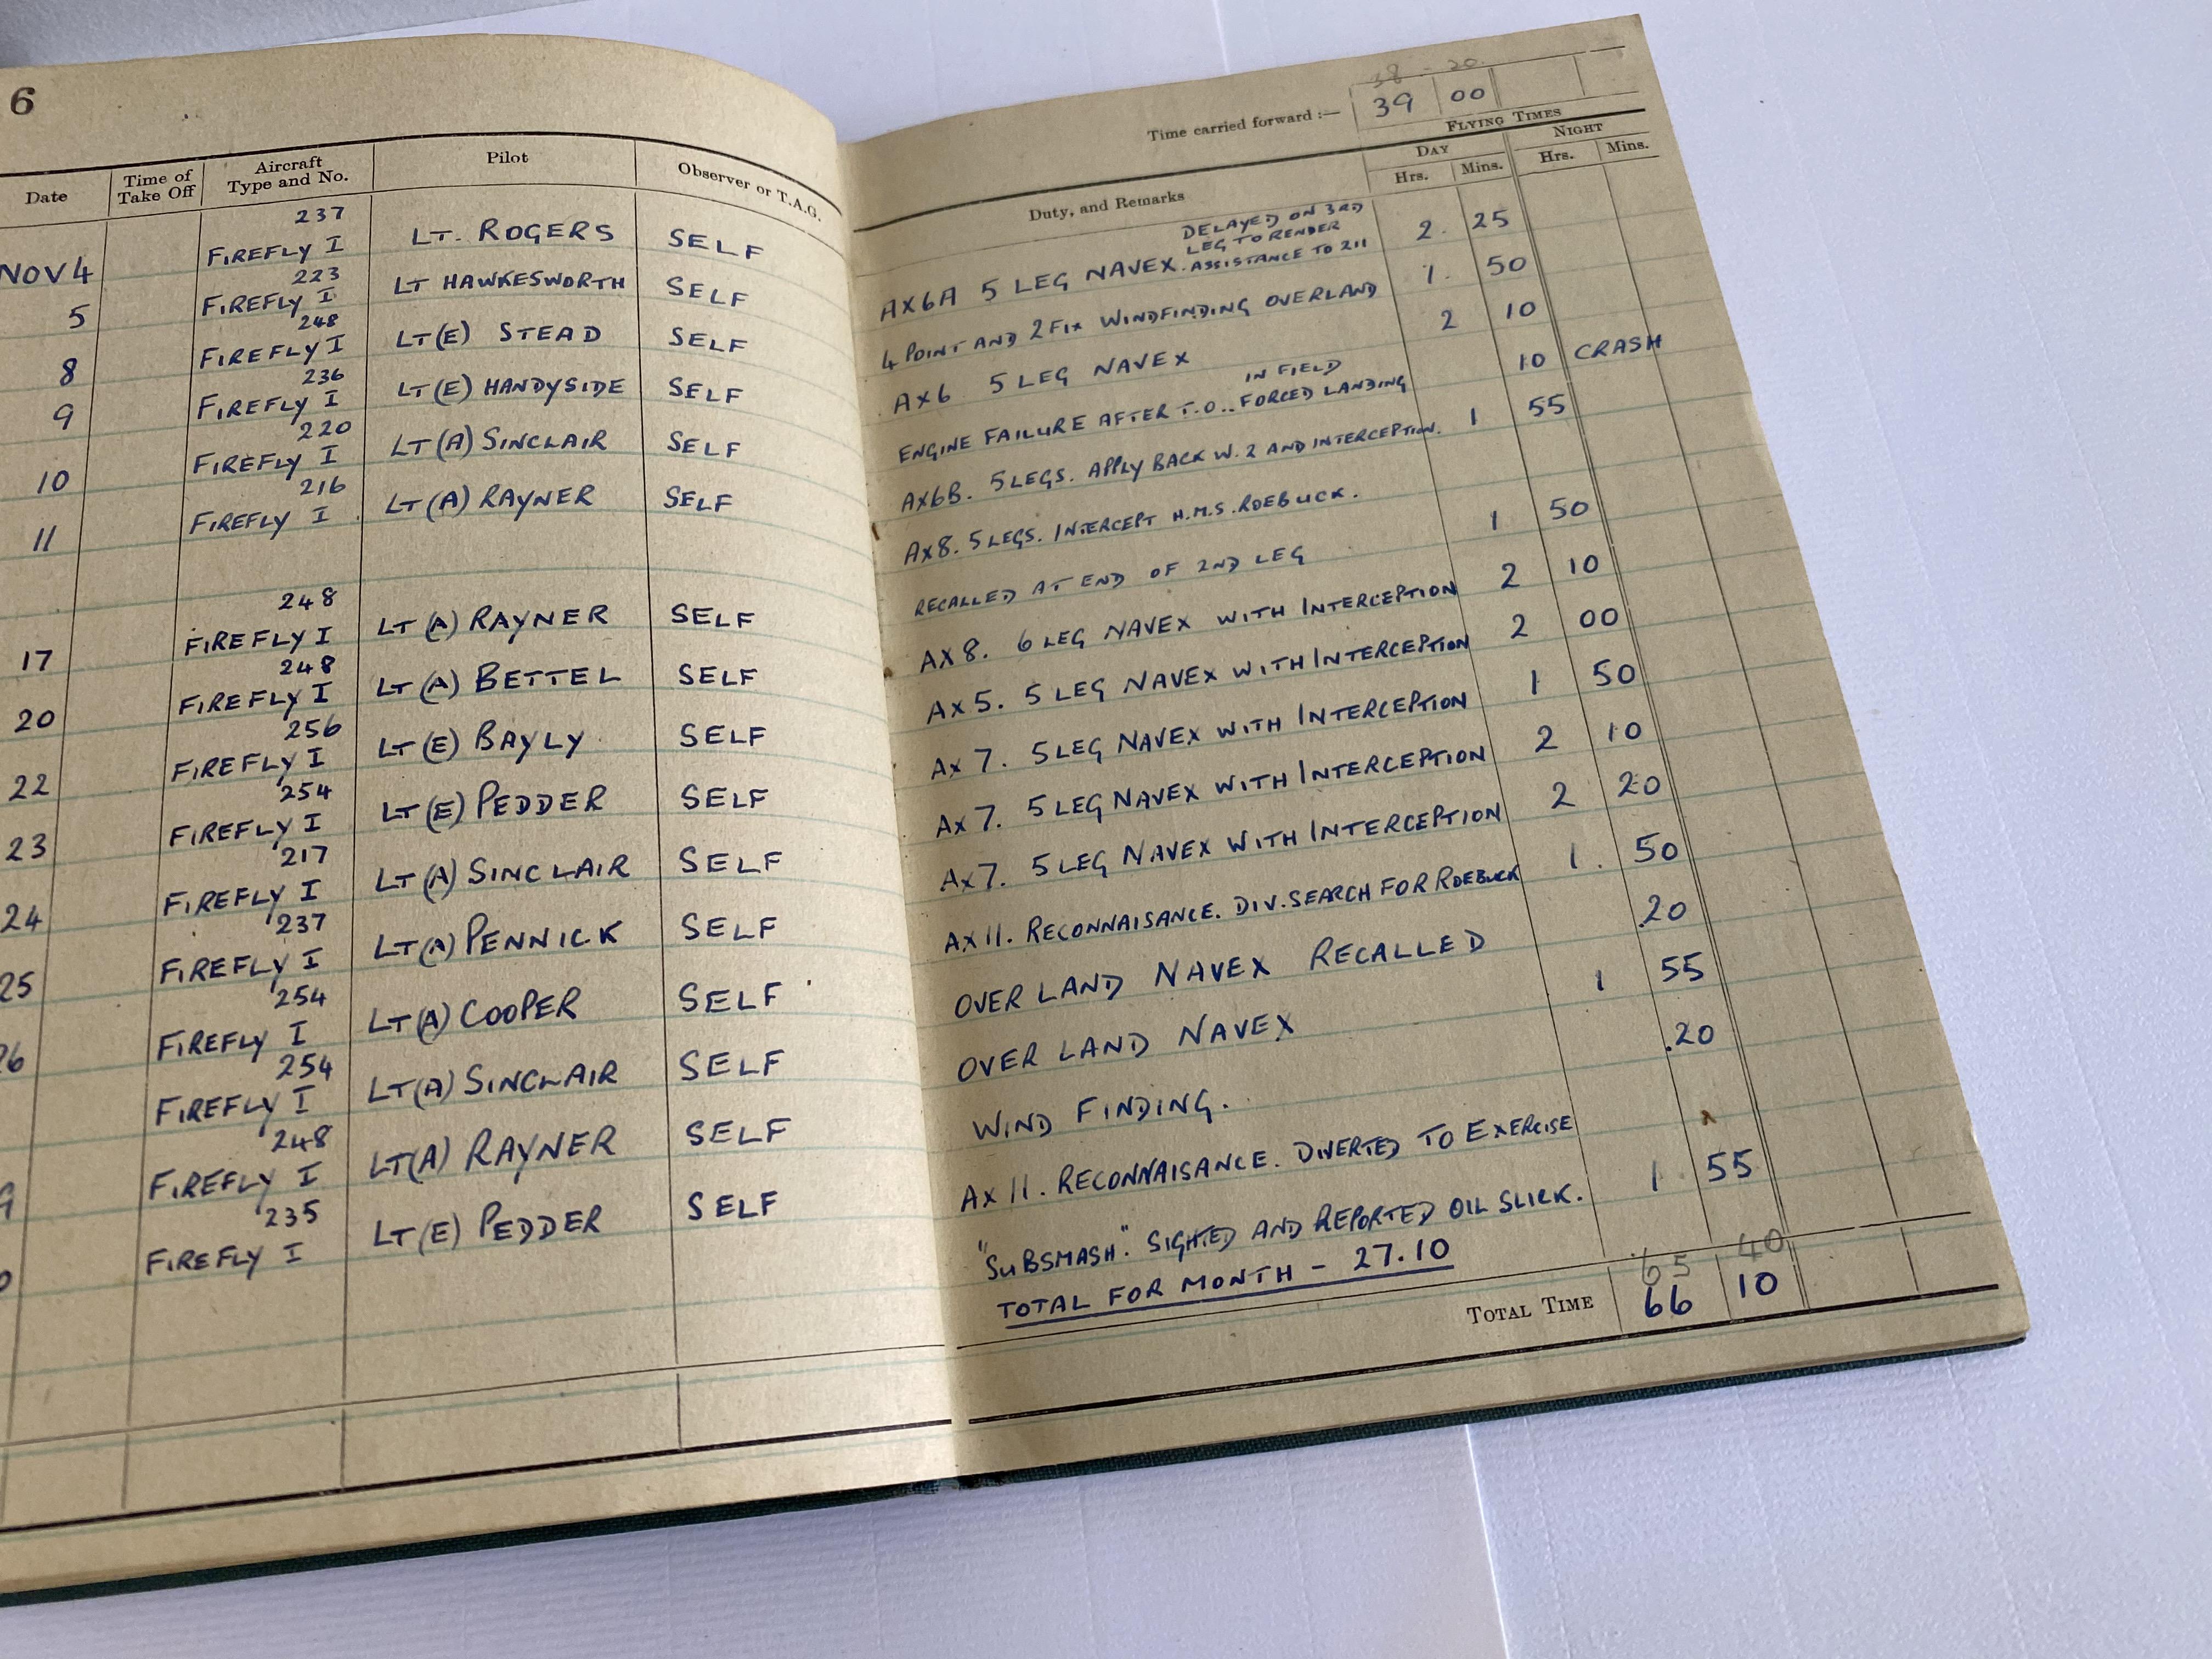 6
Date
Time of Take Off
Aircraft Type and No.
Pilot
Observer or T.A.G.
NOV 4 237 FIREFLY I LT. ROGERS SELF
5 223 FIREFLY I LT HAWKESWORTH SELF
8 248 FIREFLY I LT(E) STEAD SELF
9 236 FIREFLY I LT(E) HANDYSIDE SELF
10 220 FIREFLY I LT(A) SINCLAIR SELF
11 216 FIREFLY I LT(A) RAYNER SELF
17 248 FIREFLY I LT(A) RAYNER SELF
20 248 FIREFLY I LT(A) BETTEL SELF
22 256 FIREFLY I LT(E) BAYLY SELF
23 254 FIREFLY I LT(E) PEDDER SELF
24 217 FIREFLY I LT(A) SINCLAIR SELF
25 237 FIREFLY I LT(A) PENNICK SELF
26 254 FIREFLY I LT(A) COOPER SELF
254 FIREFLY I LT(A) SINCLAIR SELF
9 248 FIREFLY I LT(A) RAYNER SELF
0 235 FIREFLY I LT(E) PEDDER SELF
38 - 20
Time carried forward :— 39 00
FLYING TIMES
DAY NIGHT
Duty, and Remarks Hrs. Mins. Hrs. Mins.
DELAYED ON 3RD
LEG TO RENDER
AX6A 5 LEG NAVEX. ASSISTANCE TO 211 2. 25
4 POINT AND 2 FIX WINDFINDING OVERLAND 1. 50
AX6 5 LEG NAVEX 2 10
IN FIELD
ENGINE FAILURE AFTER T.O.. FORCED LANDING 10 CRASH
AX6B. 5 LEGS. APPLY BACK W.2 AND INTERCEPTION. 1 55
AX8. 5 LEGS. INTERCEPT H.M.S. ROEBUCK.
RECALLED AT END OF 2ND LEG 1 50
AX 8. 6 LEG NAVEX WITH INTERCEPTION 2 10
AX 5. 5 LEG NAVEX WITH INTERCEPTION 2 00
AX 7. 5 LEG NAVEX WITH INTERCEPTION 1 50
AX 7. 5 LEG NAVEX WITH INTERCEPTION 2 10
AX 7. 5 LEG NAVEX WITH INTERCEPTION 2 20
AX 11. RECONNAISANCE. DIV. SEARCH FOR ROEBUCK 1. 50
OVER LAND NAVEX RECALLED .20
OVER LAND NAVEX 1 55
WIND FINDING. .20
AX 11. RECONNAISANCE. DIVERTED TO EXERCISE
"SUBSMASH". SIGHTED AND REPORTED OIL SLICK. 1 55
TOTAL FOR MONTH - 27.10
65 40
TOTAL TIME 66 10